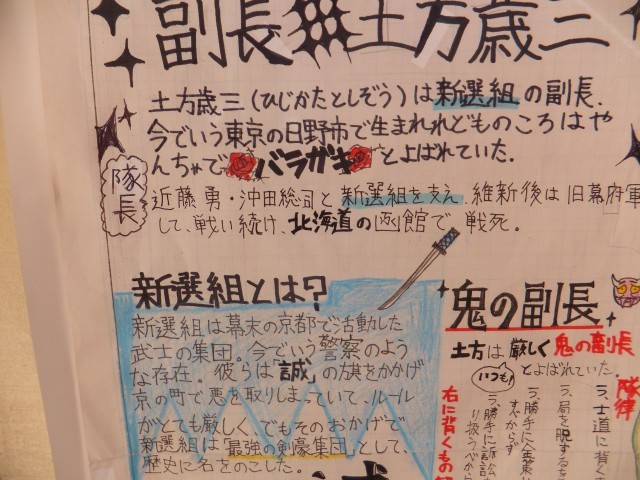 副長 土方歳三
土方歳三(ひじかたとしぞう)は新選組の副長、
今でいう東京の日野市で生まれれどものころはや
んちゃで バラガキ とよばれていた。
隊長
近藤勇・沖田総司と新選組を支え、維新後は旧幕府軍
して、戦い続け、北海道の函館で戦死。
新選組とは?
新選組は幕末の京都で活動した
武士の集団。今でいう警察のよう
な存在。彼らは「誠」の旗をかかげ
京の町で悪を取りしまっていて、ルール
がとても厳しく、でもそのおかげで
新選組は「最強の剣豪集団」として、
歴史に名をのこした。
鬼の副長
土方は厳しく鬼の副長
とよばれていた。
いつも!
隊律
一、士道に背く
一、局を脱するを
一、勝手に金策
すべからず
一、勝手に訴訟
り扱うべから
右に背くもの